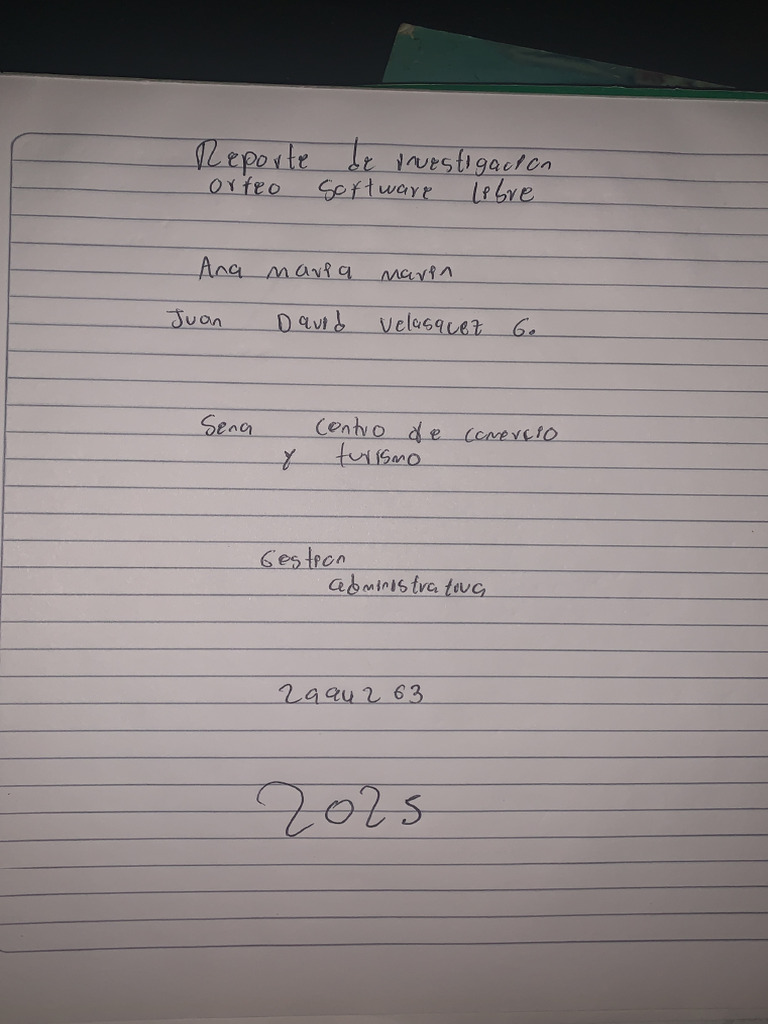 Reporte de investigacion
orfeo software libre
Ana maria marin
Juan David Velasquez G.
Sena Centro de comercio
y turismo
Gestion
administrativa
2994263
2025